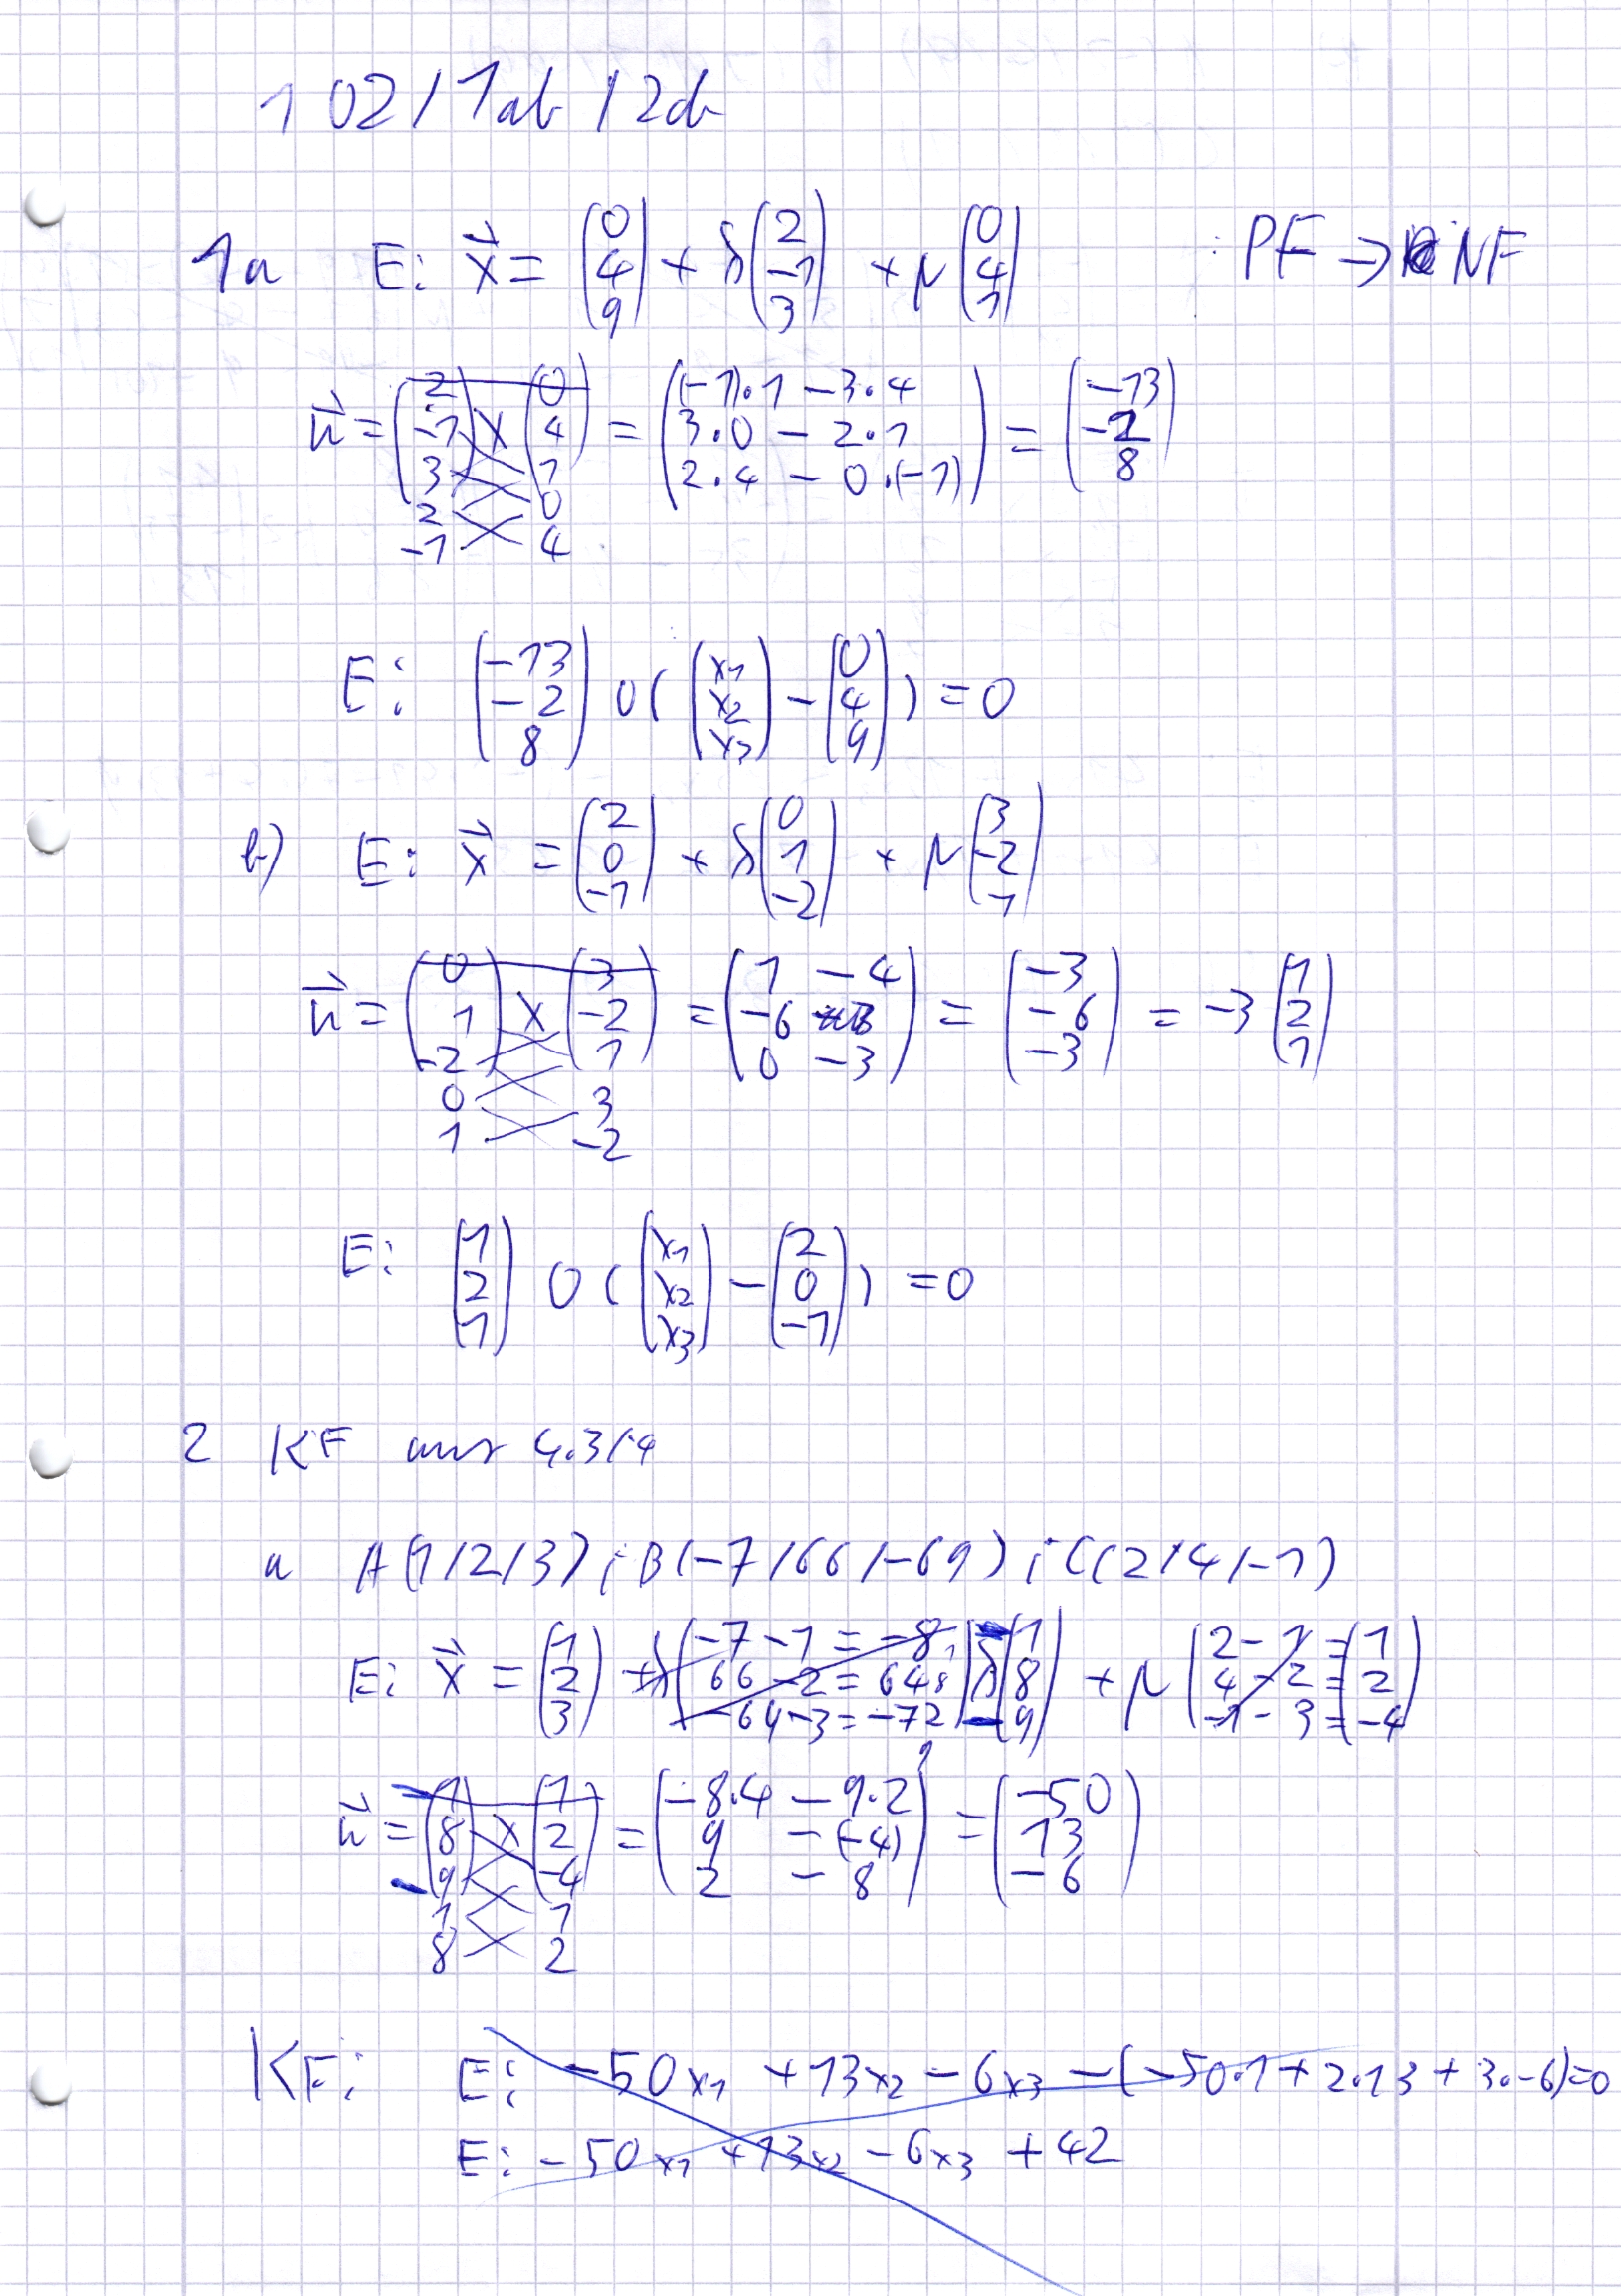 102 / 1ab / 2ab
1a E: x⃗ = (0 4 9) + λ(2 -1 3) + μ(0 4 1) PF → NF
n⃗ = (2 -1 3) × (0 4 1) = ((-1)·1 - 3·4 3·0 - 2·1 2·4 - 0·(-1)) = (-13 -2 8)
2 0
-1 4
E: (-13 -2 8) o ((x1 x2 x3) - (0 4 9)) = 0
b) E: x⃗ = (2 0 -1) + λ(0 1 -2) + μ(3 -2 1)
n⃗ = (0 1 -2) × (3 -2 1) = (1 - 4 -6 0 - 3) = (-3 -6 -3) = -3 (1 2 1)
0 3
1 -2
E: (1 2 1) o ((x1 x2 x3) - (2 0 -1)) = 0
2 KF aus 4.3/4
a A(1/2/3) ; B(-7/66/-69) ; C(2/4/-1)
E: x⃗ = (1 2 3) + λ(-7-1=-8 66-2=64 -69-3=-72) λ(-1 8 -9) + μ(2-1= 4-2= -1-3=) (1 2 -4)
n⃗ = (-1 8 -9) × (1 2 -4) = (-8·4 - 9·2 9 - (-4) 2 - 8) = (-50 13 -6)
1 1
8 2
KF: E: -50x1 + 13x2 - 6x3 - (-50·1 + 2·13 + 3·-6)=0
E: -50x1 + 13x2 - 6x3 + 42